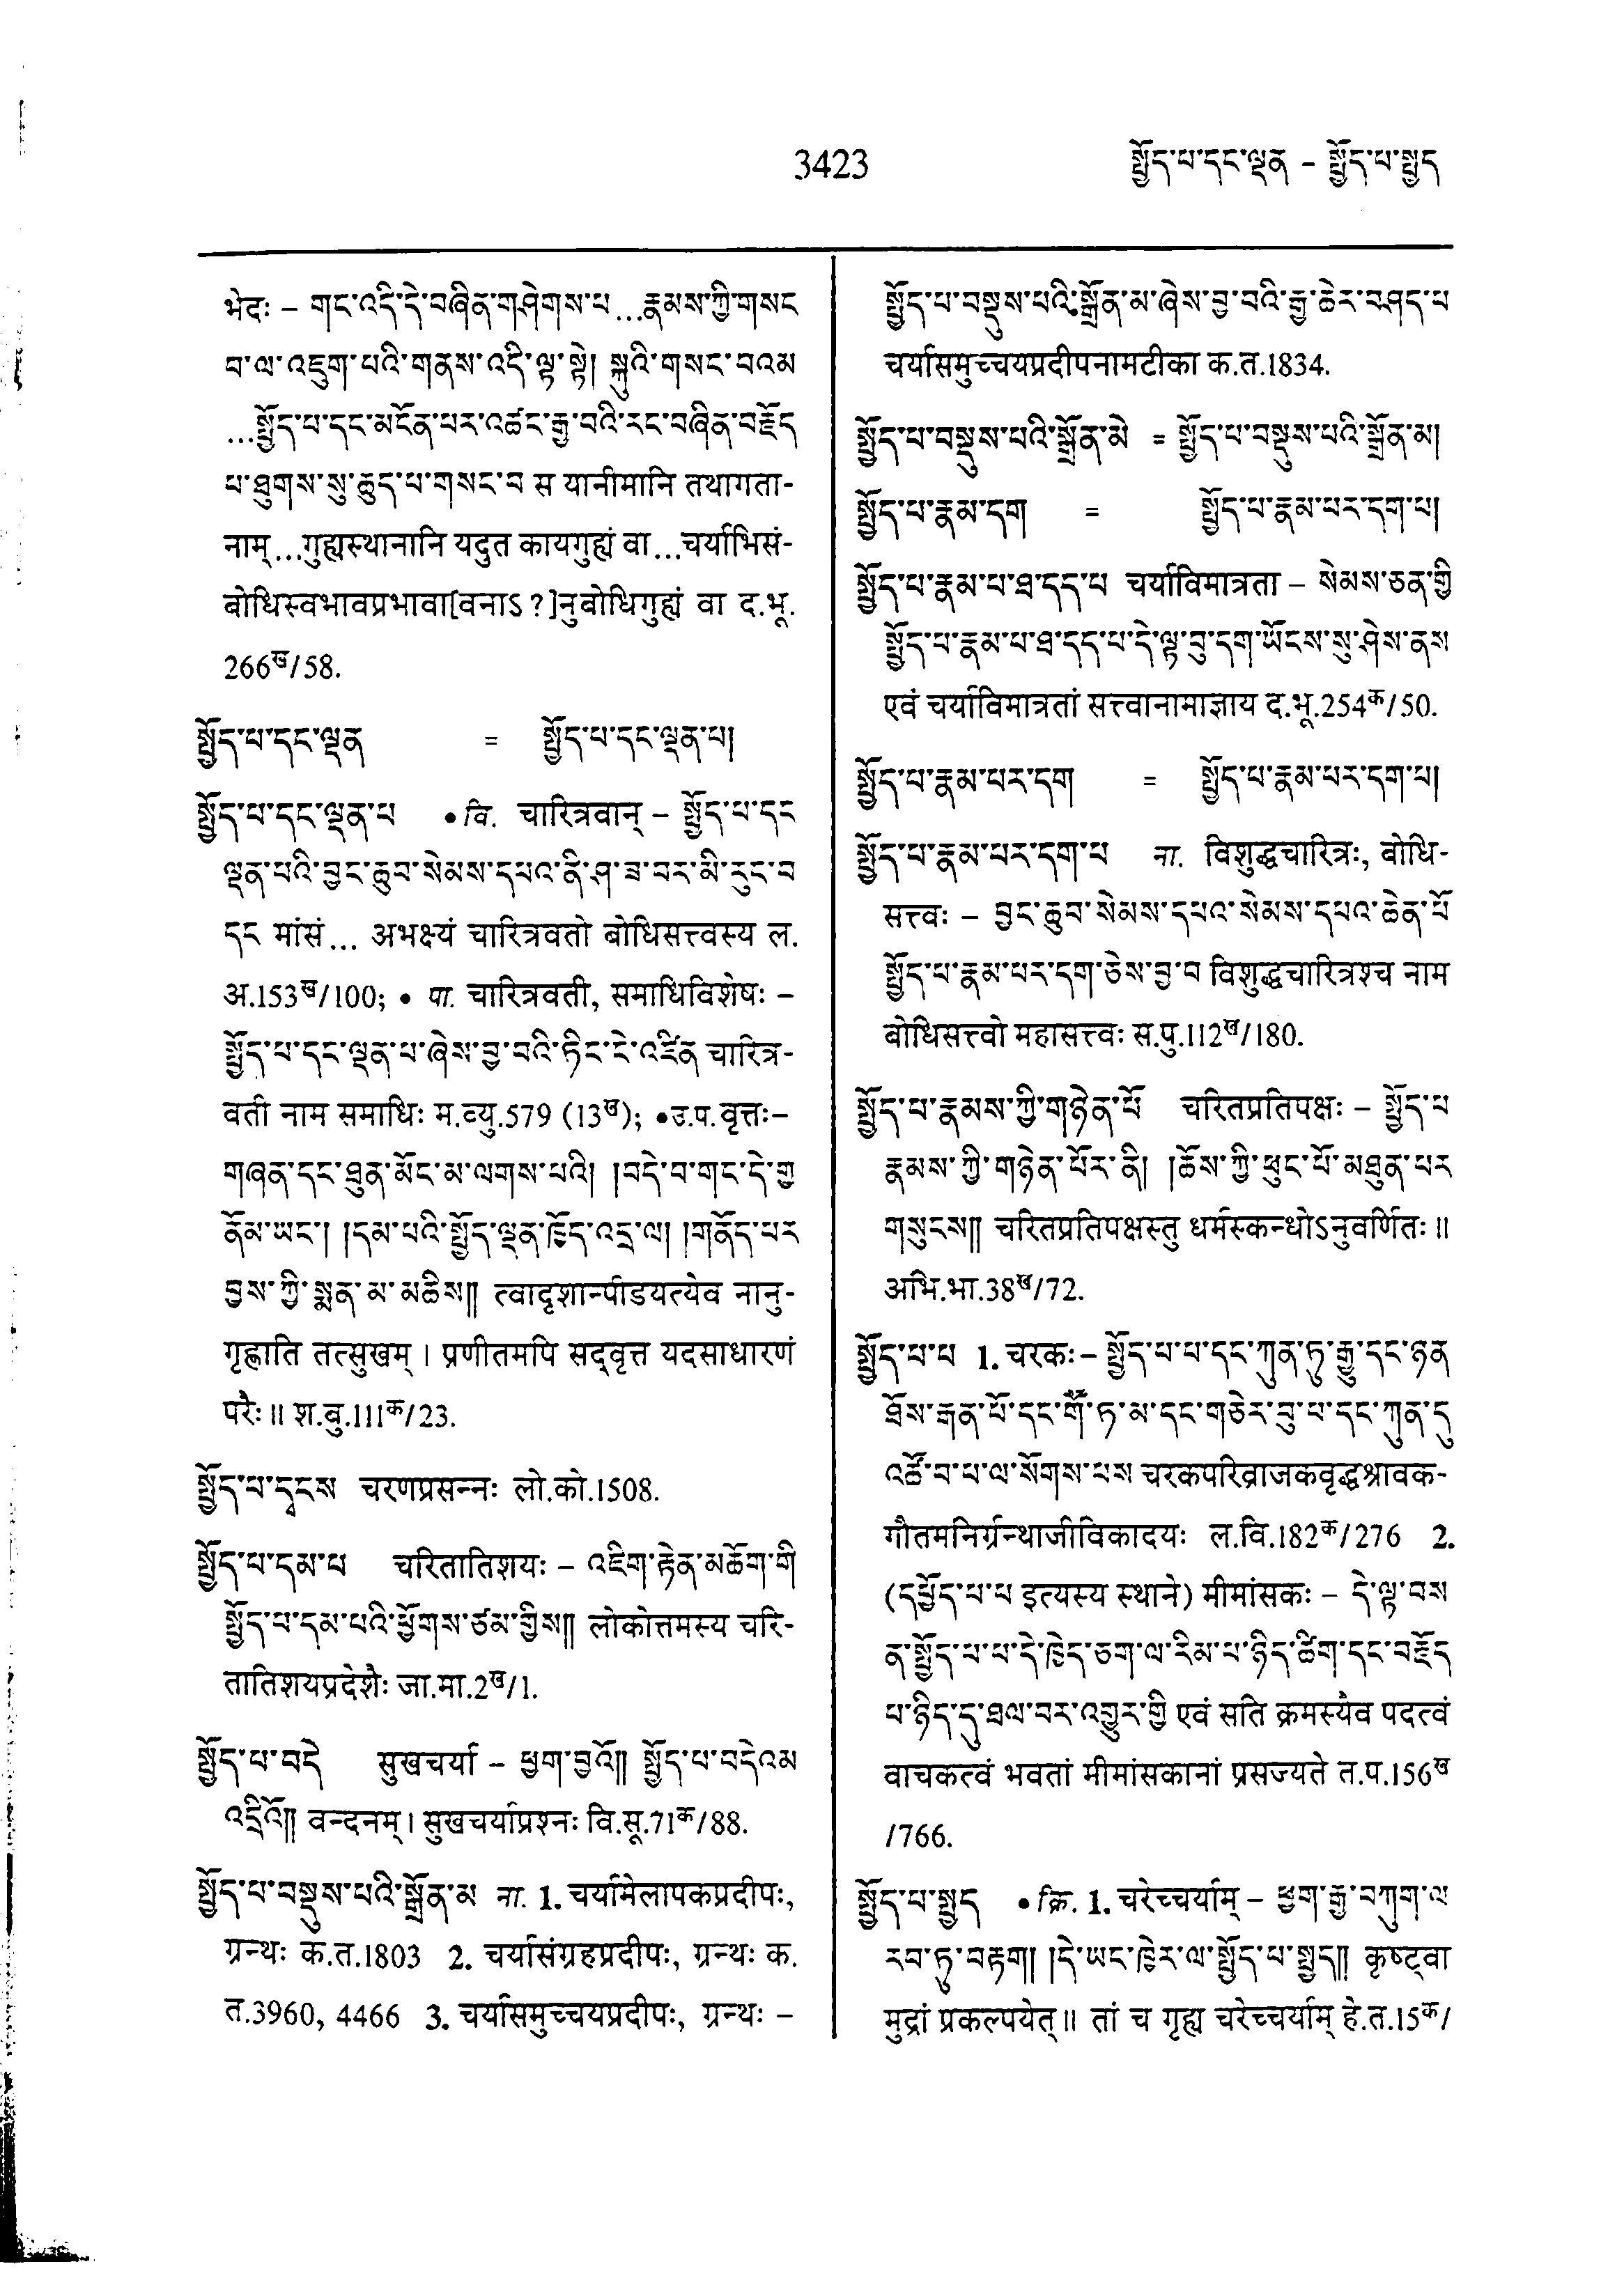 3423
སྤྱོད་པ་དང་ལྡན – སྤྱོད་པ་སྤྱད
भेदः – གང་འདི་དེ་བཞིན་གཤེགས་པ...རྣམས་ཀྱི་གསང
བ་ལ་འཇུག་པའི་གནས་འདི་ལྟ་སྟེ། སྐུའི་གསང་བའམ
...སྤྱོད་པ་དང་མངོན་པར་འཚང་རྒྱ་བའི་རང་བཞིན་བརྗོད
པ་ཐུགས་སུ་ཆུད་པ་གསང་བ स यानीमानि तथागता-
नाम्...गुह्यस्थानानि यदुत कायगुह्यं वा...चर्याभिसं-
बोधिस्वभावप्रभावा[वनाऽ ?]नुबोधिगुह्यं वा द.भू.
266ख/58.
སྤྱོད་པ་དང་ལྡན = སྤྱོད་པ་དང་ལྡན་པ།
སྤྱོད་པ་དང་ལྡན་པ •वि. चारित्रवान् – སྤྱོད་པ་དང
ལྡན་པའི་བྱང་ཆུབ་སེམས་དཔའ་ནི་ཤ་ཟ་བར་མི་རུང་བ
དང मांसं... अभक्ष्यं चारित्रवतो बोधिसत्त्वस्य ल.
अ.153ख/100; • पा. चारित्रवती, समाधिविशेषः –
སྤྱོད་པ་དང་ལྡན་པ་ཞེས་བྱ་བའི་ཏིང་ངེ་འཛིན चारित्र-
वती नाम समाधिः म.व्यु.579 (13ख); •उ.प. वृत्तः–
གཞན་དང་ཐུན་མོང་མ་ལགས་པའི། །བདེ་བ་གང་དེ་གྱ
ནོམ་ཡང་། །དམ་པའི་སྤྱོད་ལྡན་ཁྱོད་འདྲ་ལ། །གནོད་པར
བྱས་ཀྱི་སྨན་མ་མཆིས།། त्वादृशान्पीडयत्येव नानु-
गृह्णाति तत्सुखम् । प्रणीतमपि सद्वृत्त यदसाधारणं
परैः ॥ श.बु.111क/23.
སྤྱོད་པ་དྭངས चरणप्रसन्नः लो.को.1508.
སྤྱོད་པ་དམ་པ चरितातिशयः – འཇིག་རྟེན་མཆོག་གི
སྤྱོད་པ་དམ་པའི་ཕྱོགས་ཙམ་གྱིས།། लोकोत्तमस्य चरि-
तातिशयप्रदेशैः जा.मा.2ख/1.
སྤྱོད་པ་བདེ सुखचर्या – ཕྱག་བྱའོ།། སྤྱོད་པ་བདེའམ
འདྲིའོ།། वन्दनम् । सुखचर्याप्रश्नः वि.सू.71क/88.
སྤྱོད་པ་བསྡུས་པའི་སྒྲོན་མ ना. 1. चर्यामेलापकप्रदीपः,
ग्रन्थः क.त.1803 2. चर्यासंग्रहप्रदीपः, ग्रन्थः क.
त.3960, 4466 3. चर्यासमुच्चयप्रदीपः, ग्रन्थः –
སྤྱོད་པ་བསྡུས་པའི་སྒྲོན་མ་ཞེས་བྱ་བའི་རྒྱ་ཆེར་བཤད་པ
चर्यासमुच्चयप्रदीपनामटीका क.त.1834.
སྤྱོད་པ་བསྡུས་པའི་སྒྲོན་མེ = སྤྱོད་པ་བསྡུས་པའི་སྒྲོན་མ།
སྤྱོད་པ་རྣམ་དག = སྤྱོད་པ་རྣམ་པར་དག་པ།
སྤྱོད་པ་རྣམ་པ་ཐ་དད་པ चर्याविमात्रता – སེམས་ཅན་གྱི
སྤྱོད་པ་རྣམ་པ་ཐ་དད་པ་དེ་ལྟ་བུ་དག་ཡོངས་སུ་ཤེས་ནས
एवं चर्याविमात्रतां सत्त्वानामाज्ञाय द.भू.254क/50.
སྤྱོད་པ་རྣམ་པར་དག = སྤྱོད་པ་རྣམ་པར་དག་པ།
སྤྱོད་པ་རྣམ་པར་དག་པ ना. विशुद्धचारित्रः, बोधि-
सत्त्वः – བྱང་ཆུབ་སེམས་དཔའ་སེམས་དཔའ་ཆེན་པོ
སྤྱོད་པ་རྣམ་པར་དག་ཅེས་བྱ་བ विशुद्धचारित्रश्च नाम
बोधिसत्त्वो महासत्त्वः स.पु.112ख/180.
སྤྱོད་པ་རྣམས་ཀྱི་གཉེན་པོ चरितप्रतिपक्षः – སྤྱོད་པ
རྣམས་ཀྱི་གཉེན་པོར་ནི། །ཆོས་ཀྱི་ཕུང་པོ་མཐུན་པར
གསུངས།། चरितप्रतिपक्षस्तु धर्मस्कन्धोऽनुवर्णितः ॥
अभि.भा.38ख/72.
སྤྱོད་པ་པ 1. चरकः– སྤྱོད་པ་པ་དང་ཀུན་ཏུ་རྒྱུ་དང་ཉན
ཐོས་རྒན་པོ་དང་གཽ་ཏ་མ་དང་གཅེར་བུ་པ་དང་ཀུན་དུ
འཚོ་བ་པ་ལ་སོགས་པས चरकपरिव्राजकवृद्धश्रावक-
गौतमनिर्ग्रन्थाजीविकादयः ल.वि.182क/276 2.
(དཔྱོད་པ་པ इत्यस्य स्थाने) मीमांसकः – དེ་ལྟ་བས
ན་སྤྱོད་པ་པ་དེ་ཁྱེད་ཅག་ལ་རིམ་པ་ཉིད་ཚིག་དང་བརྗོད
པ་ཉིད་དུ་ཐལ་བར་འགྱུར་གྱི एवं सति क्रमस्यैव पदत्वं
वाचकत्वं भवतां मीमांसकानां प्रसज्यते त.प.156ख
/766.
སྤྱོད་པ་སྤྱད •क्रि. 1. चरेच्चर्याम् – ཕྱག་རྒྱ་བཀུག་ལ
རབ་ཏུ་བརྟག། །དེ་ཡང་ཁྱེར་ལ་སྤྱོད་པ་སྤྱད།། कृष्ट्वा
मुद्रां प्रकल्पयेत् ॥ तां च गृह्य चरेच्चर्याम् हे.त.15क/